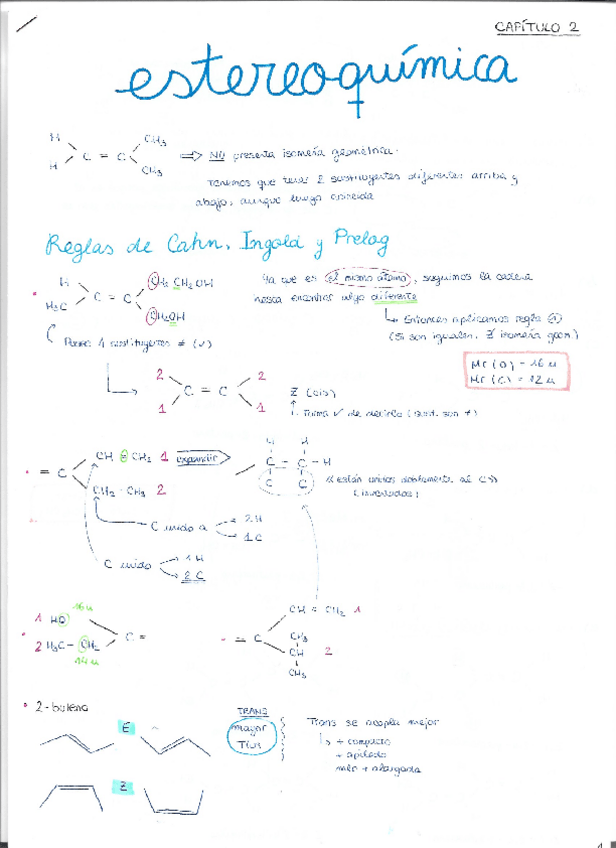 CAPÍTULO 2
estereoquímica
H CH3
C = C
H CH3
NO presenta isomería geométrica.
Tenemos que tener 2 sustituyentes diferentes arriba y
abajo, aunque luego coincida
Reglas de Cahn, Ingold y Prelog
H CH2CH2OH
C = C
H3C CH2OH
Posee 4 sustituyentes ≠ (✓)
Ya que es el mismo átomo, seguimos la cadena
hasta encontrar algo diferente
Entonces aplicamos regla 1
(Si son iguales, Z isomería geom)
Mr (O) = 16 u
Mr (C) = 12 u
2 2
C = C
1 1
Z (cis)
Forma ✓ de decirlo (sust. son ≠)
= C
CH = CH2 1
CH2 - CH3 2
expandir
H H
C = C - H
C C
están unidos doblemente al C
(inventados)
C unido a 2 H
1 C
C unido 1 H
2 C
16u
1 HO
2 H3C - CH2
14u
C =
= C
CH = CH2 1
CH3
CH 2
CH3
2-buteno
E
Z
TRANS
mayor
Tfus
Trans se acopla mejor
+ compacto
+ apilado
+ alargada